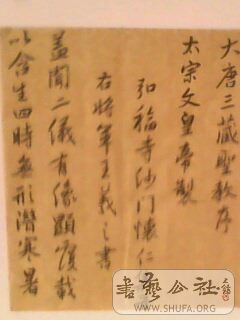 大唐三藏聖教序
太宗文皇帝製
弘福寺沙門懷仁集
右將軍王羲之書
蓋聞二儀有像顯覆載
以含生四時無形潛寒暑
書藝公社
WWW.SHUFA.ORG